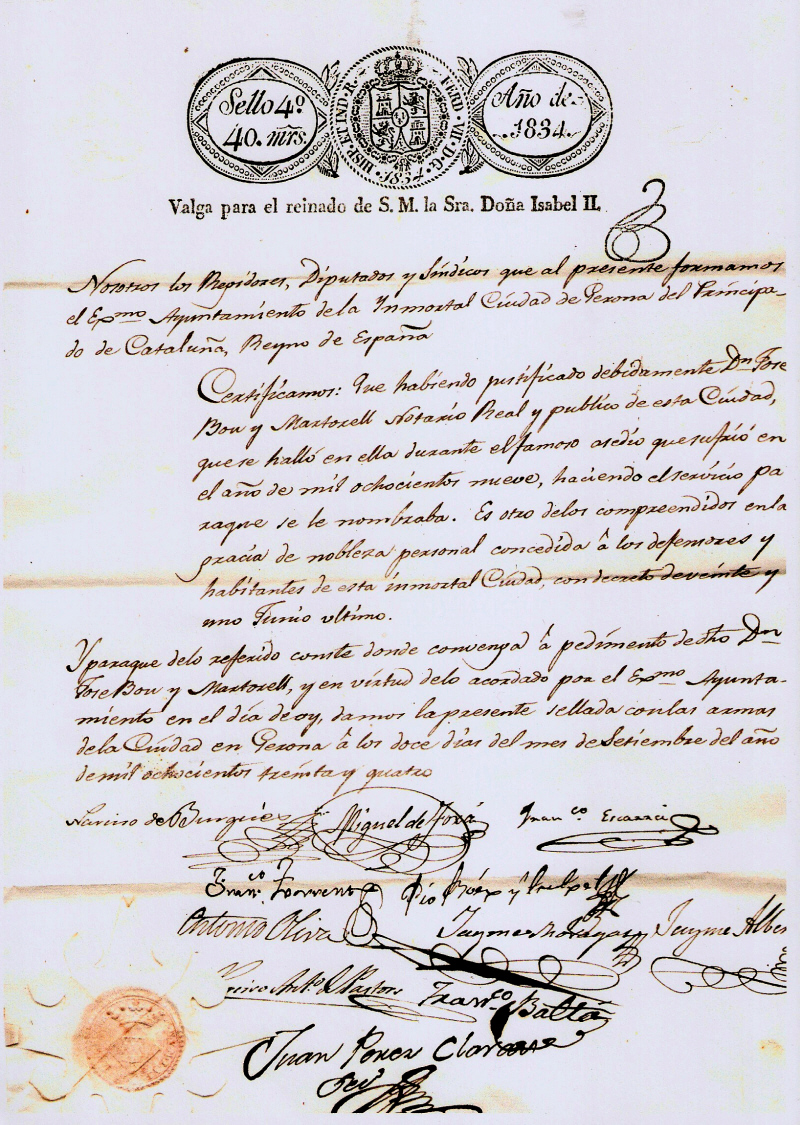 Sello 4º
40. mrs.
HISP. ET IND. R. FERD. VII. D. G.
1834
Año de
1834.
Valga para el reinado de S. M. la Sra. Doña Isabel II.
Nosotros los Regidores, Diputados y Síndicos que al presente formamos
el Exmo Ayuntamiento de la Inmortal Ciudad de Gerona del Principa-
do de Cataluña, Reyno de España
Certificamos: Que habiendo justificado debidamente Dn Jose
Bou y Martorell Notario Real y publico de esta Ciudad,
que se halló en ella durante el famoso asedio que sufrió en
el año de mil ochocientos nueve, haciendo el servicio pa
raque se le nombraba. Es otro delos compreendidos enla
gracia de nobleza personal concedida â los defensores y
habitantes de esta inmortal Ciudad, con decreto de veinte y
uno Junio ultimo.
Y paraque delo referido conste donde convenga â pedimento de dho Dn
Jose Bou y Martorell, y en virtud delo acordado por el Exmo Ayunta-
miento en el dia de oy, damos la presente sellada con las armas
dela Ciudad en Gerona â los doce dias del mes de Setiembre del año
de mil ochocientos treinta y quatro
Narciso de Burgués Miguel de Foxá Franco Escarrá
Franco Torrent Pio
Antonio Oliva Jayme Jayme Alber
Franco Baltá
Juan Perez Claras